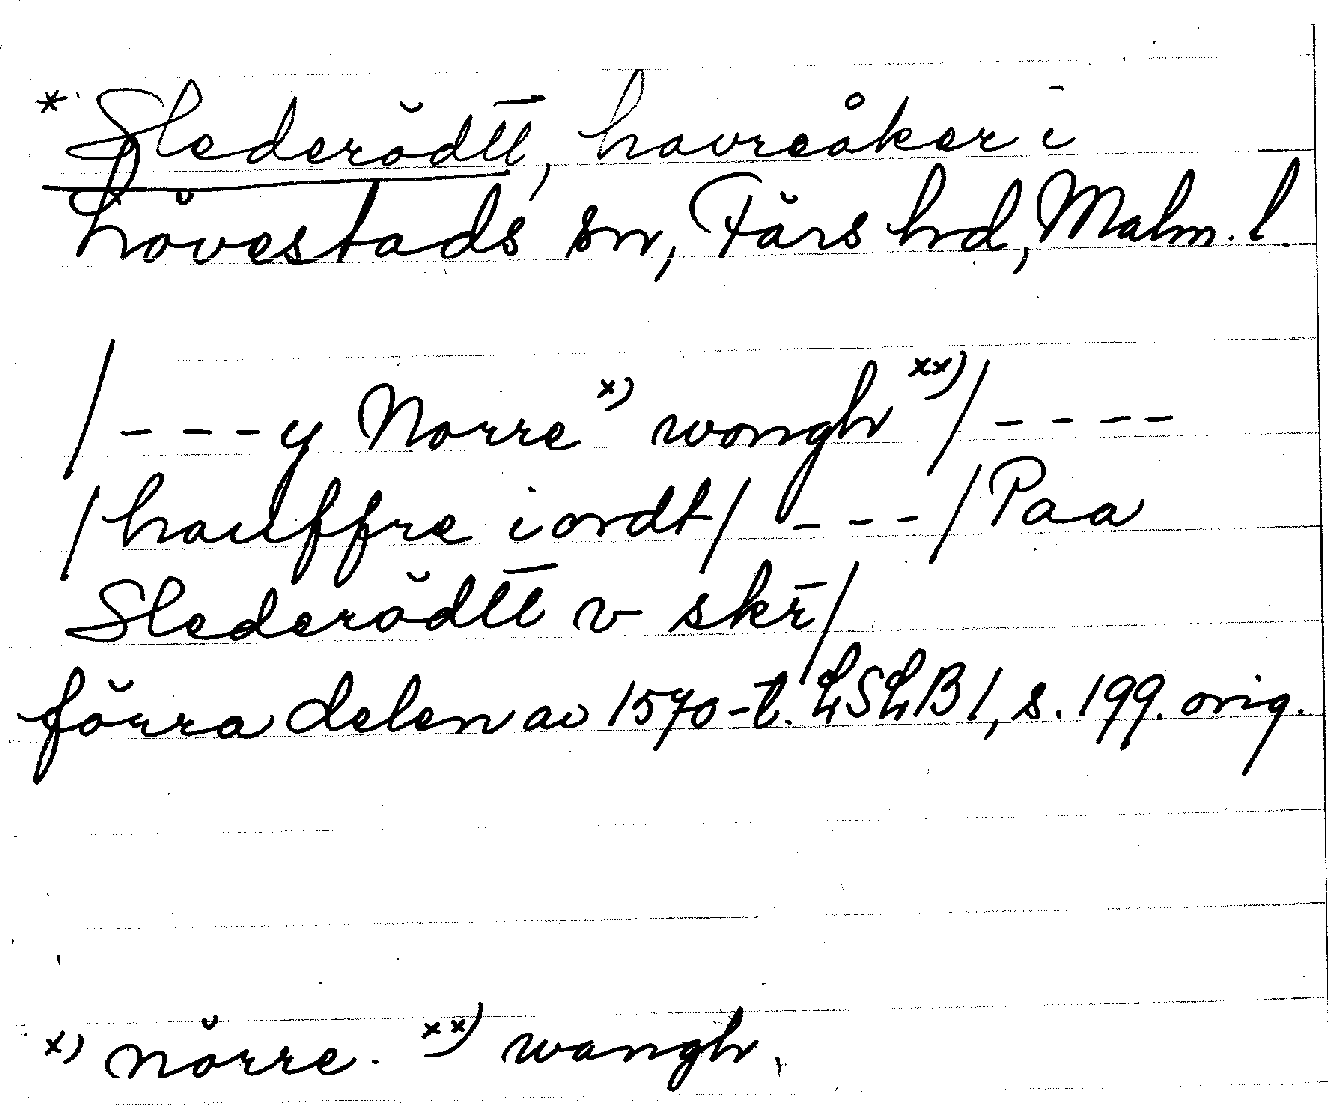 * Slederödtt, havreåker i
Lövestads sn, Färs hd, Malm. l.
/ - - - y Norre x) wongh xx) / - - - -
/ hauffre iordt / - - - / Paa
Slederödtt v skr̄ /
förra delen av 1570-t. LSLB 1, s. 199. orig.
x) nörre. xx) wangh.